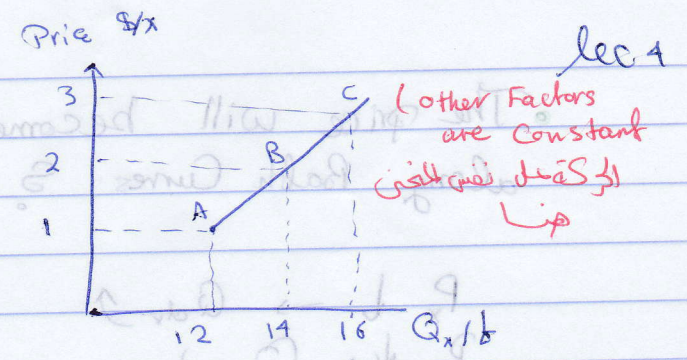 Price $/x
lec 4
3
2
1
A
B
C
(other Factors
are Constant
الحركة على نفس المنحنى
هنا
12 14 16 Qx/t